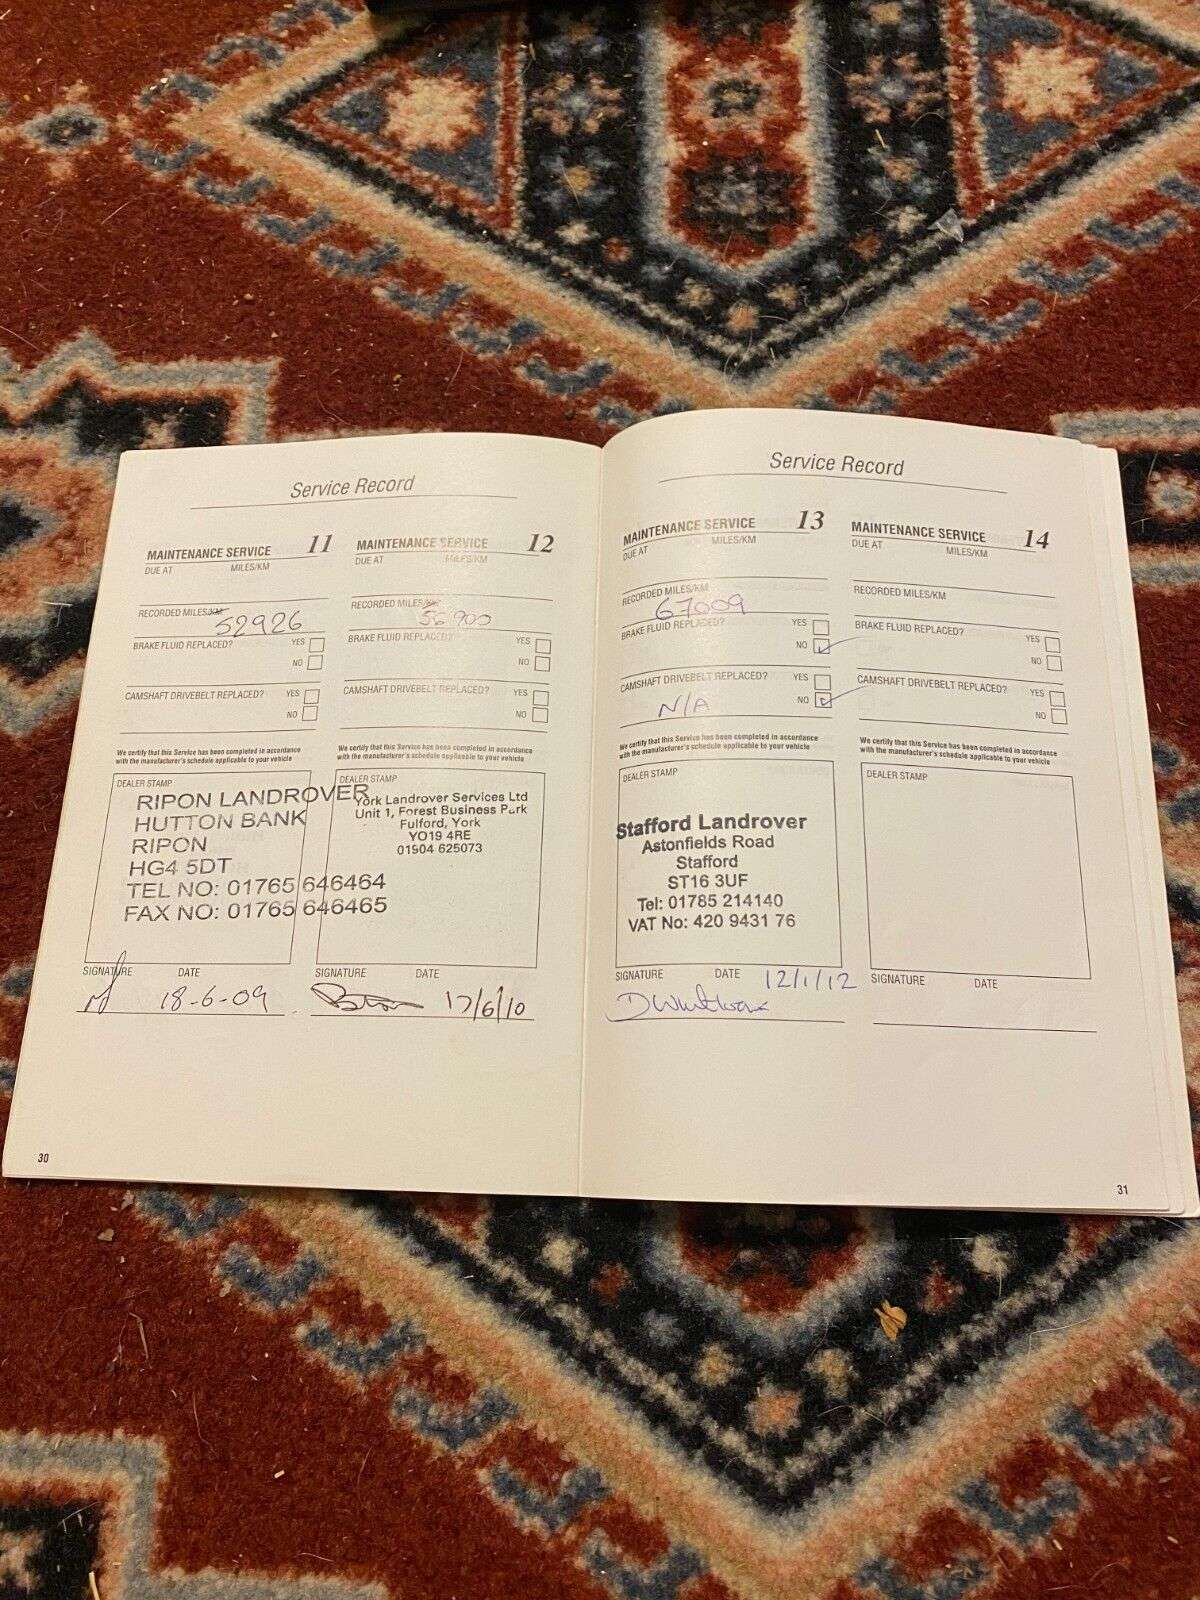 Service Record
MAINTENANCE SERVICE 11
DUE AT MILES/KM
RECORDED MILES/KM
52926
BRAKE FLUID REPLACED? YES
NO
CAMSHAFT DRIVEBELT REPLACED? YES
NO
We certify that this Service has been completed in accordance
with the manufacturer's schedule applicable to your vehicle
DEALER STAMP
RIPON LANDROVER
HUTTON BANK
RIPON
HG4 5DT
TEL NO: 01765 646464
FAX NO: 01765 646465
SIGNATURE DATE
18-6-09
MAINTENANCE SERVICE 12
DUE AT MILES/KM
RECORDED MILES/KM
56900
BRAKE FLUID REPLACED? YES
NO
CAMSHAFT DRIVEBELT REPLACED? YES
NO
We certify that this Service has been completed in accordance
with the manufacturer's schedule applicable to your vehicle
DEALER STAMP
York Landrover Services Ltd
Unit 1, Forest Business Park
Fulford, York
YO19 4RE
01904 625073
SIGNATURE DATE
17/6/10
30
Service Record
MAINTENANCE SERVICE 13
DUE AT MILES/KM
RECORDED MILES/KM
67009
BRAKE FLUID REPLACED? YES
NO
CAMSHAFT DRIVEBELT REPLACED? YES
N/A NO
We certify that this Service has been completed in accordance
with the manufacturer's schedule applicable to your vehicle
DEALER STAMP
Stafford Landrover
Astonfields Road
Stafford
ST16 3UF
Tel: 01785 214140
VAT No: 420 9431 76
SIGNATURE DATE 12/1/12
MAINTENANCE SERVICE 14
DUE AT MILES/KM
RECORDED MILES/KM
BRAKE FLUID REPLACED? YES
NO
CAMSHAFT DRIVEBELT REPLACED? YES
NO
We certify that this Service has been completed in accordance
with the manufacturer's schedule applicable to your vehicle
DEALER STAMP
SIGNATURE DATE
31